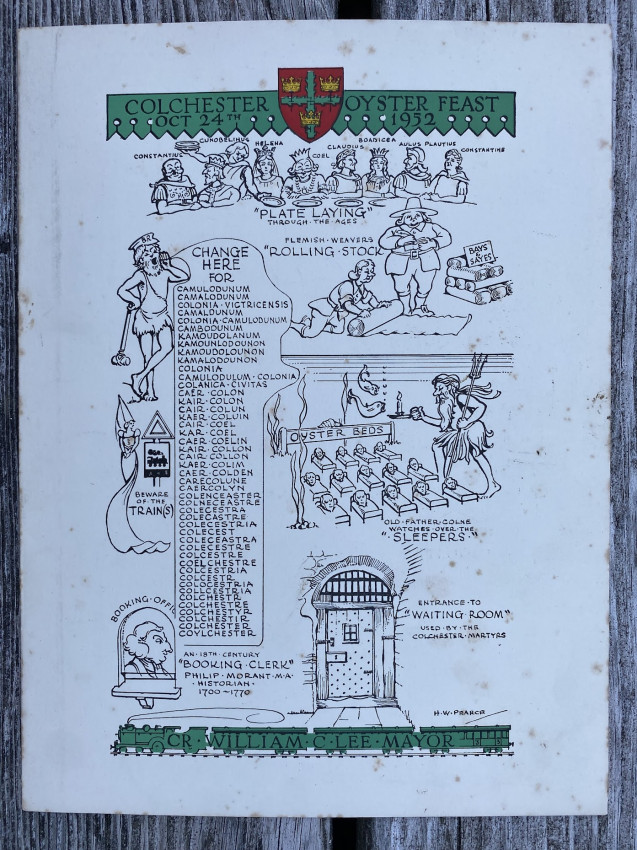 COLCHESTER OYSTER FEAST
OCT 24TH 1952
CONSTANTIUS
CUNOBELINUS
HELENA
COEL
CLAUDIUS
BOADICEA
AULUS PLAUTIUS
CONSTANTINE
"PLATE LAYING"
THROUGH·THE·AGES
FLEMISH·WEAVERS
"ROLLING·STOCK"
BAYS
&
SAYES
CHANGE
HERE
FOR
CAMULODUNUM
CAMALODUNUM
COLONIA·VICTRICENSIS
CAMALDUNUM
COLONIA·CAMULODUNUM
CAMBODUNUM
KAMOUDOLANUM
KAMOUNLODOUNON
KAMOUDOLOUNON
KAMALODOUNON
COLONIA
CAMULODULUM·COLONIA
COLANICA·CIVITAS
CAER·COLON
KAIR·COLON
CAIR·COLUN
KAER·COLUIN
CAIR·COEL
KAR·COEL
CAER·COELIN
KAIR·COLLON
CAIR·COLLON
KAER·COLIM
CAER·COLDEN
CARECOLUNE
CAERCOLYN
COLENCEASTER
COLNECEASTRE
COLECESTRA
COLECASTRE
COLECESTRIA
COLECEST
COLECEASTRA
COLECESTRE
COLCESTRE
COELCHESTRE
COLCESTRIA
COLCESTR
COLOCESTRIA
COLLCESTRIA
COLCHESTR
COLCHESTRE
COLCHESTYR
COLCHESTIR
COLCHESTER
COVLCHESTER
BEWARE
OF·THE
TRAIN(S)
OYSTER BEDS
OLD·FATHER·COLNE
WATCHES·OVER·THE
"·SLEEPERS·"
BOOKING·OFFICE
AN·18TH·CENTURY
"BOOKING·CLERK"
PHILIP·MORANT·M·A·
·HISTORIAN·
1700~1770
ENTRANCE·TO
"WAITING·ROOM"
USED·BY·THE
COLCHESTER·MARTYRS
H·W·PEARCE
CR·WILLIAM·C·LEE·MAYOR